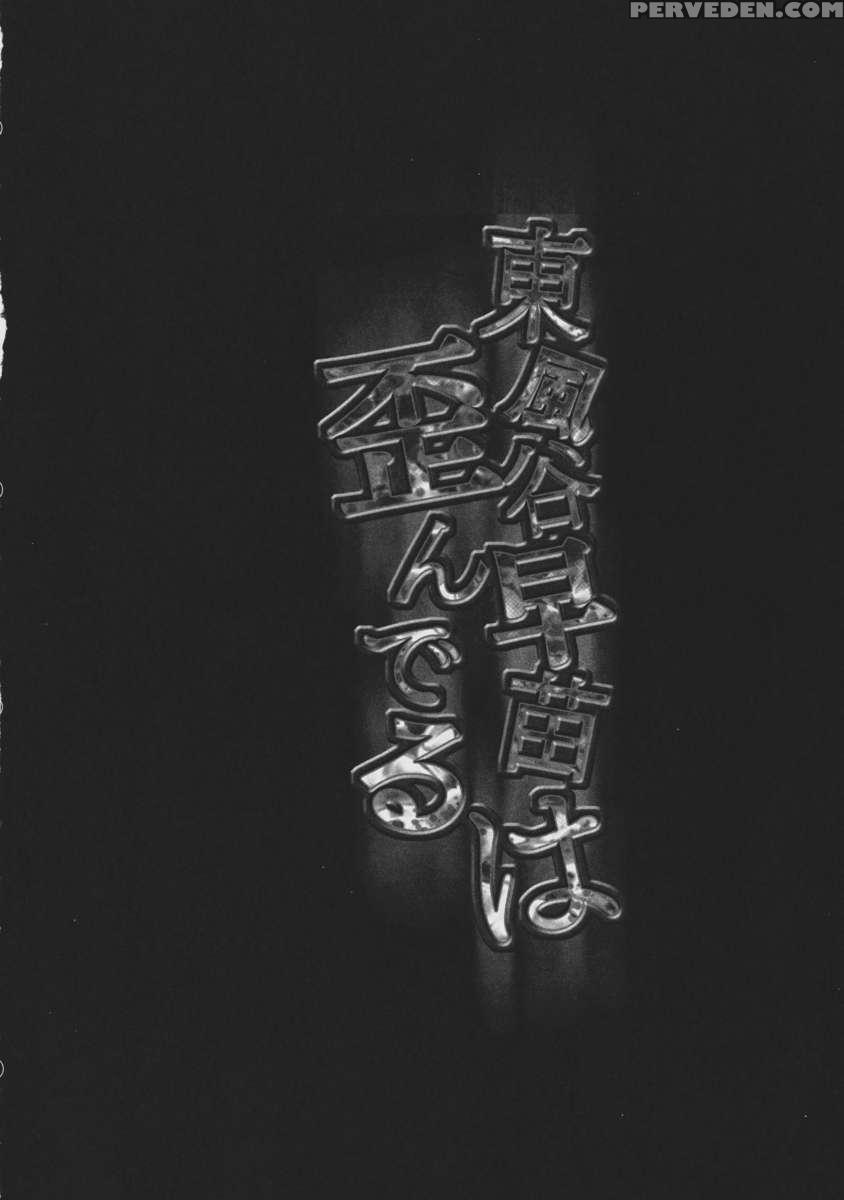 PERVEDEN.COM
東風谷早苗は
歪んでる